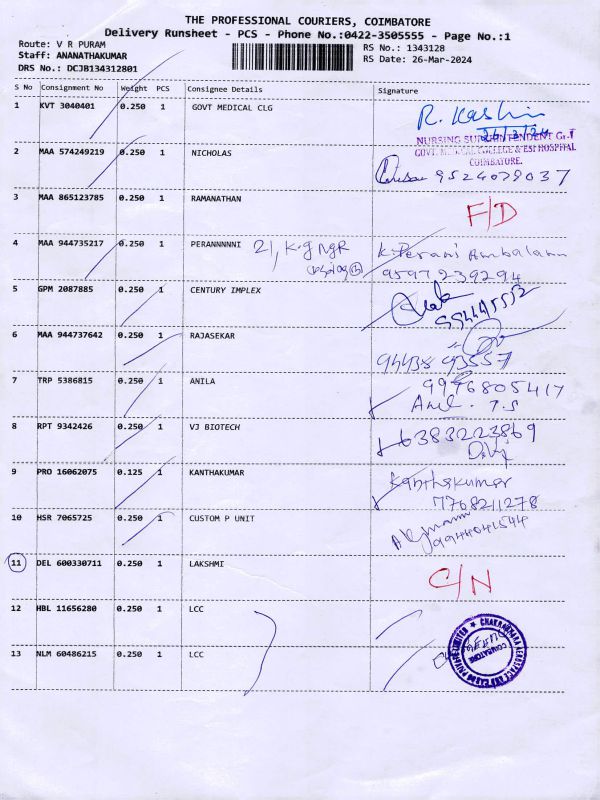 THE PROFESSIONAL COURIERS, COIMBATORE
Delivery Runsheet - PCS - Phone No.:0422-3505555 - Page No.:1
Route: V R PURAM
Staff: ANANATHAKUMAR
DRS No.: DCJB134312801
RS No.: 1343128
RS Date: 26-Mar-2024
S No Consignment No Weight PCS Consignee Details Signature
1 KVT 3040401 0.250 1 GOVT MEDICAL CLG
26/3/24
NURSING SUPERINTENDENT Gr.I
GOVT. MEDICAL COLLEGE & ESI HOSPITAL
COIMBATORE.
2 MAA 574249219 0.250 1 NICHOLAS
9524079037
3 MAA 865123785 1 RAMANATHAN F/D
4 MAA 944735217 0.250 1 PERANNNNNI 21, K.g NgR K. Perani Ambalam
9597239294
5 GPM 2087885 0.250 1 CENTURY IMPLEX
6 MAA 944737642 0.250 1 RAJASEKAR
94438 93557
7 TRP 5386815 0.250 1 ANILA 9996805417
Anil . T.S
8 RPT 9342426 0.250 1 VJ BIOTECH 6383223869
9 PRO 16062075 0.125 1 KANTHAKUMAR Kanthakumar
7708211278
10 HSR 7065725 0.250 1 CUSTOM P UNIT
9944041544
11 DEL 600330711 0.250 1 LAKSHMI C/N
12 HBL 11656280 0.250 1 LCC
13 NLM 60486215 0.250 1 LCC
COIMBATORE